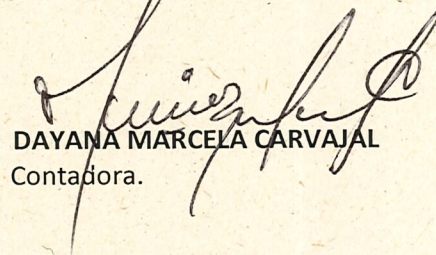 DAYANA MARCELA CARVAJAL
Contadora.